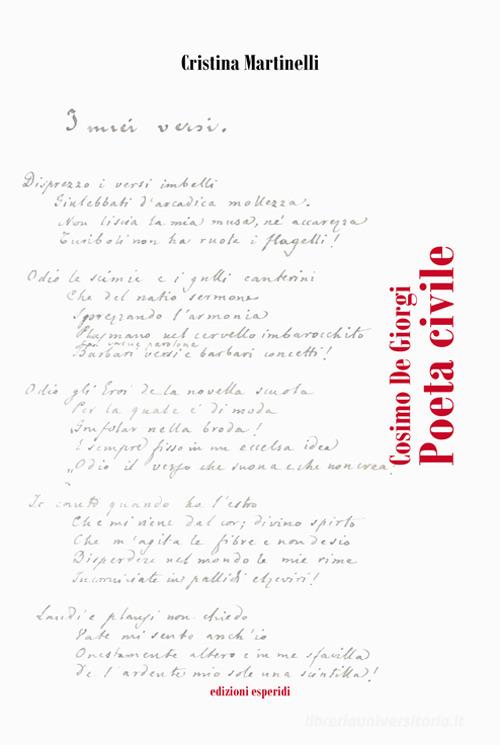 Cristina Martinelli
I miei versi.
Disprezzo i versi imbelli
Giulebbati d'arcadica mollezza.
Non liscia la mia musa, né accarezza
Turiboli non ha ruota i flagelli!
Odio le scimie e i grulli canterini
Che del natio sermone
Sprezzando l'armonia
Plasmano nel cervello imbarocchito
parolone
Barbari versi e barbari concetti!
Odio gli Eroi de la novella scuola
Per la quale è di moda
Grufolar nella broda!
È sempre fisso in me eccelsa idea
„Odio il verso che suona e che non crea.
Io canto quando ho l'estro
Che mi viene dal cor; divino spirto
Che m'agita le fibre e non desio
Disperdere nel mondo le mie rime
Incorniciate in pallidi elzeviri!
Laudi e plausi non chiedo
Vate mi sento anch'io
Onestamente altero e in me sfavilla
De l'ardente mio sole una scintilla!
Cosimo De Giorgi
Poeta civile
edizioni esperidi
libreriauniversitaria.it